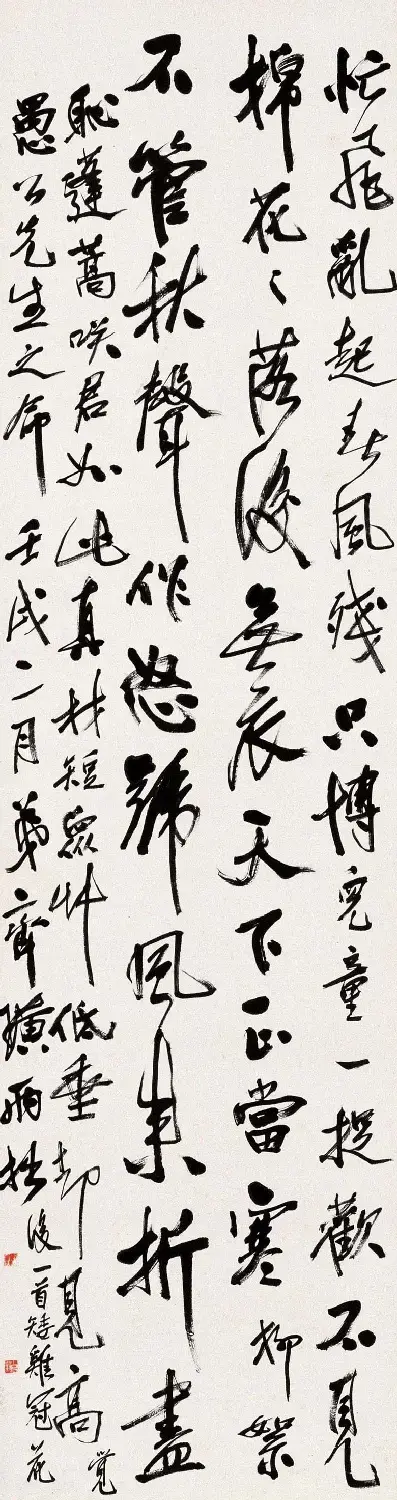 忙飛亂起春風殘只博兒童一捉歡不見
棉花〻落後無衣天下正當寒柳絮
不管秋聲作怒號風來折盡
恥蓬蒿咲君如此真材短眾艸低垂却見高覺
愚公先生之命壬戌二月弟齊璜兩拙
後一首矮雞冠花